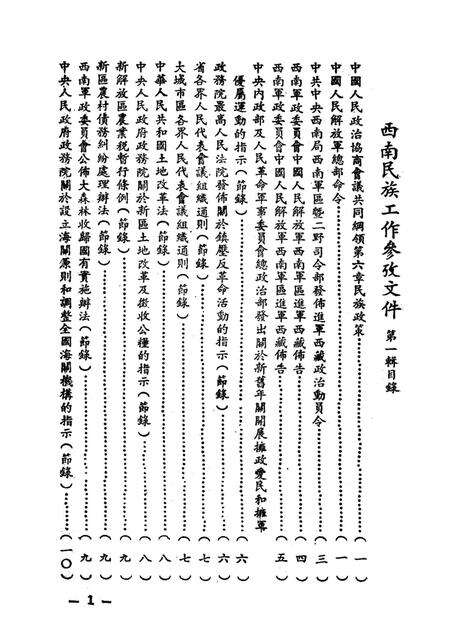 西南民族工作參攷文件 第一輯目錄
中國人民政治協商會議共同綱領第六章民族政策……（一）
中國人民解放軍總部命令……（一）
中共中央西南局西南軍區曁二野司令部發佈進軍西藏政治動員令……（三）
西南軍政委員會中國人民解放軍西南軍區進軍西藏佈告……（四）
西南軍政委員會中國人民解放軍西南軍區進軍西藏佈告……（五）
中央內政部及人民革命軍事委員會總政治部發出關於新舊年關開展擁政愛民和擁軍
優屬運動的指示（節錄）……（六）
政務院最高人民法院發佈關於鎮壓反革命活動的指示（節錄）……（六）
省各界人民代表會議組織通則（節錄）……（七）
大城市區各界人民代表會議組織通則（節錄）……（七）
中華人民共和國土地改革法（節錄）……（八）
中央人民政府政務院關於新區土地改革及徵收公糧的指示（節錄）……（八）
新解放區農業稅暫行條例（節錄）……（九）
新區農村債務糾紛處理辦法（節錄）……（九）
西南軍政委員會公佈大森林收歸國有實施辦法（節錄）……（九）
中央人民政府政務院關於設立海關原則和調整全國海關機構的指示（節錄）……（一〇）
— 1 —